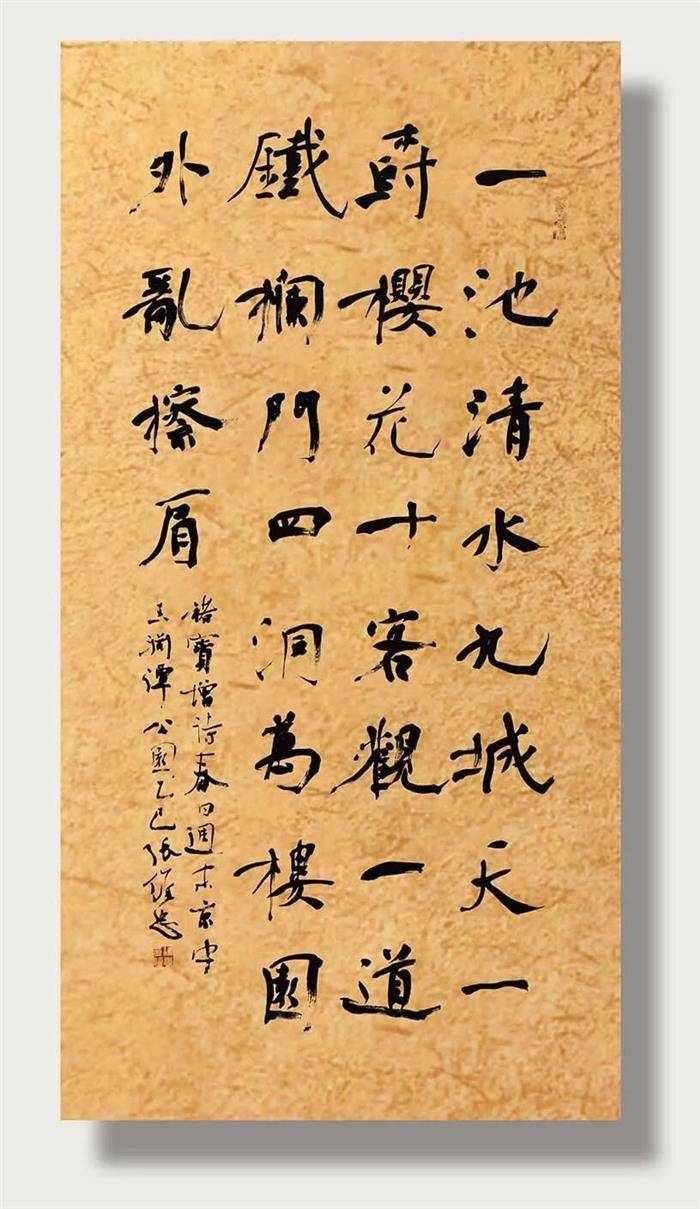 一池清水九城天一
樹櫻花十客觀一道
鐵欄門四洞萬樓園
外亂擦肩
褚寶增詩春日週末京中
玉淵潭公園乙巳張維忠